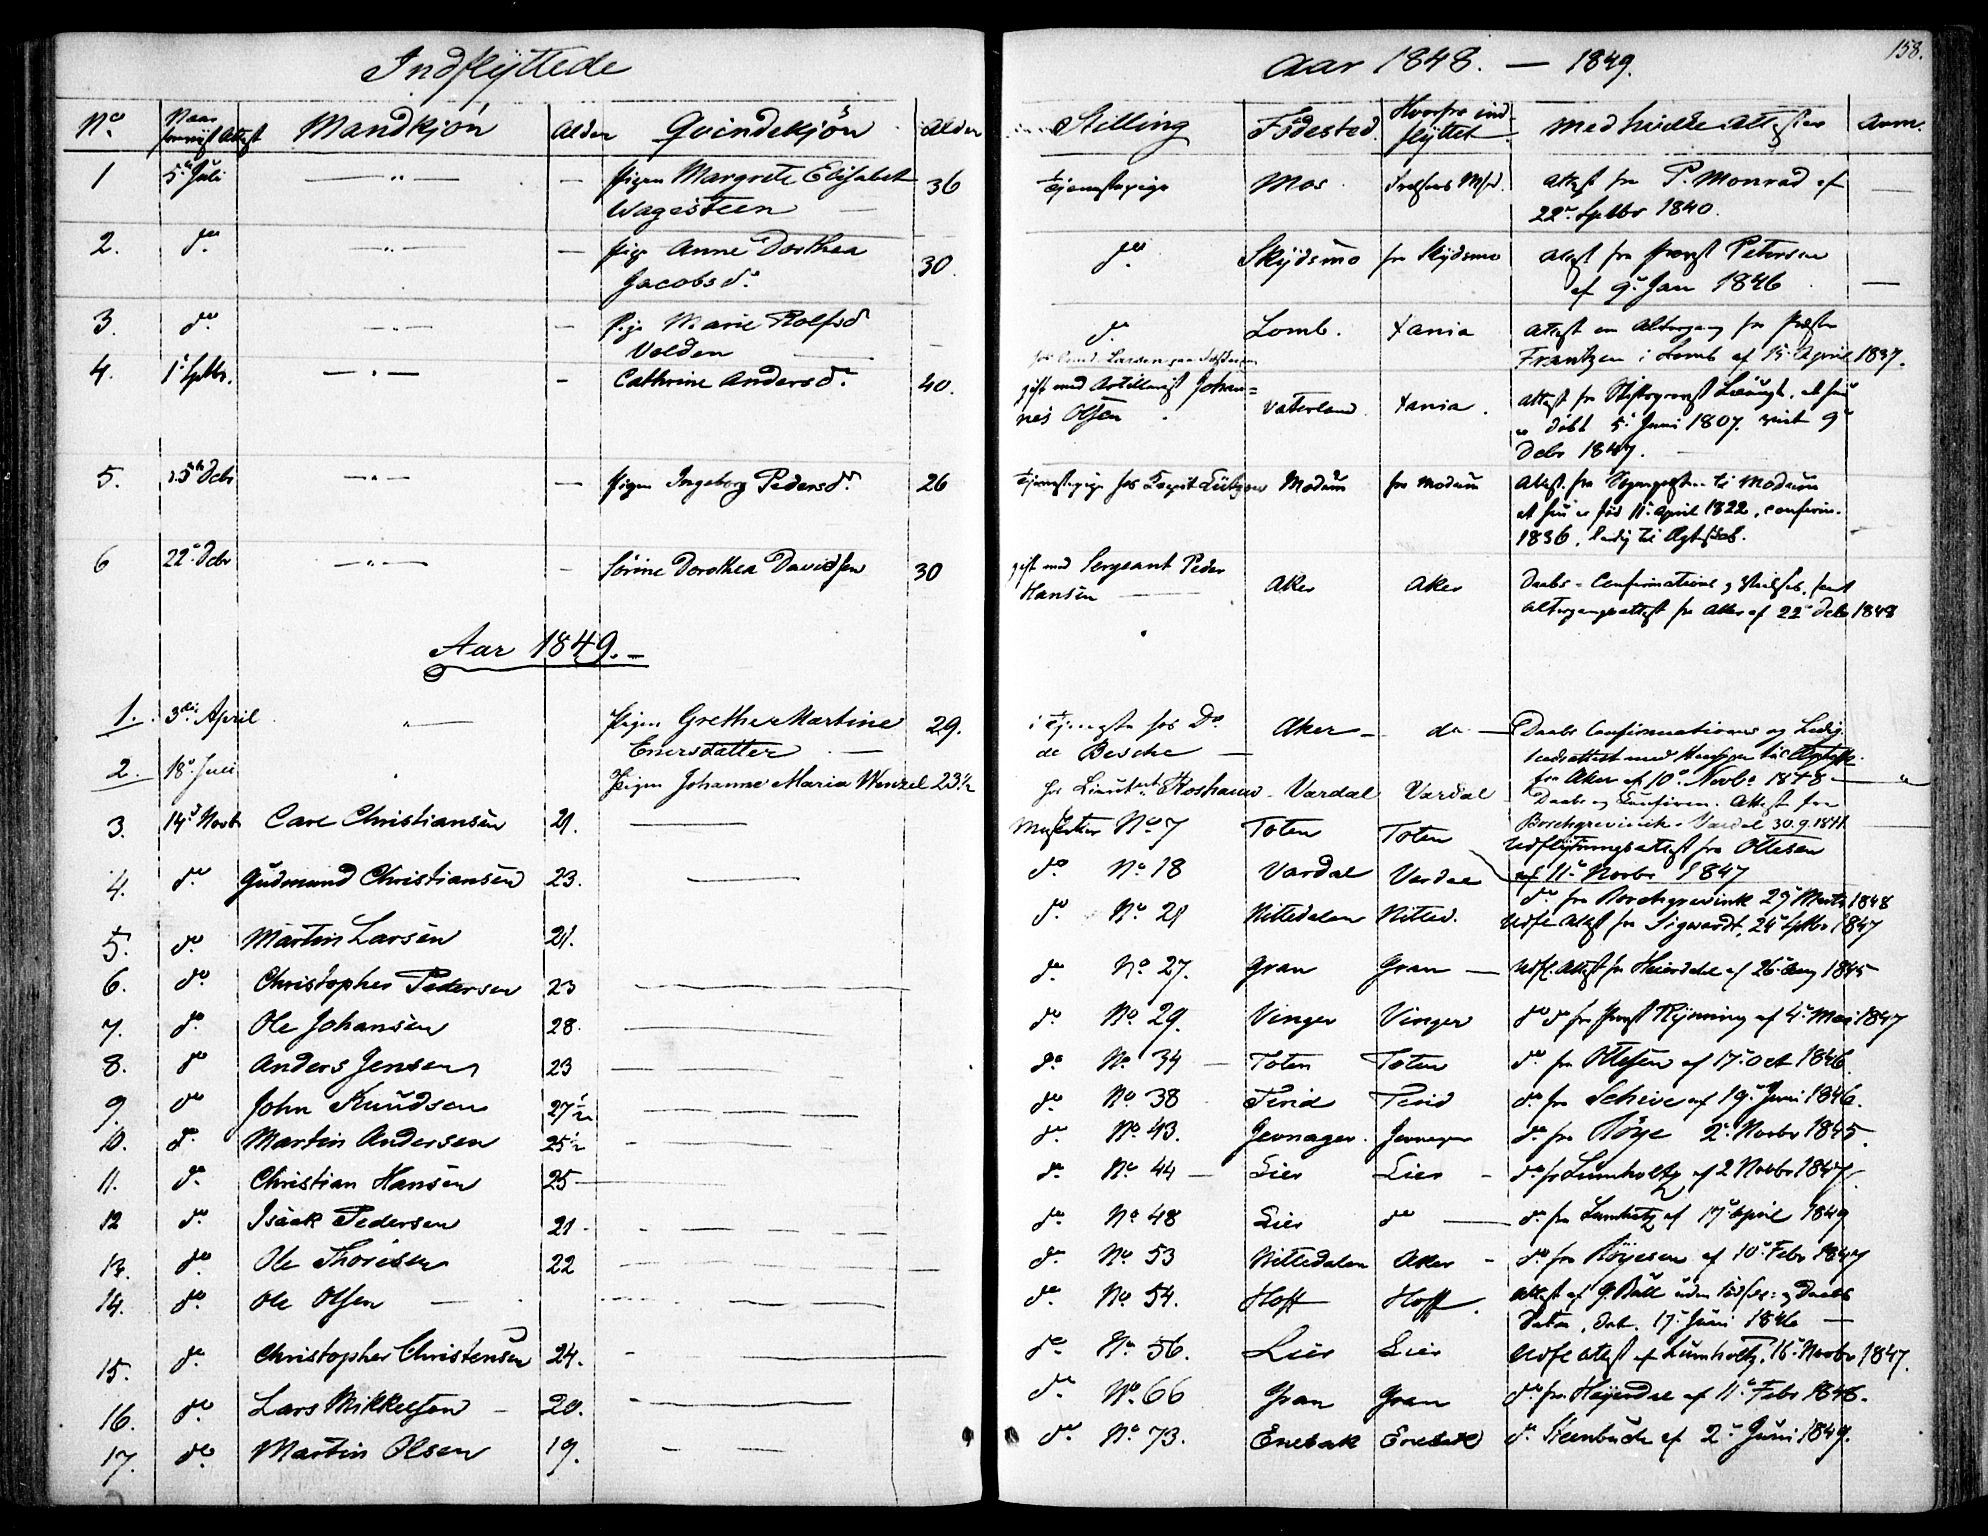 Indflyttede
Aar 1848. — 1849.
158.
No. Naar Attest Mandkjön Alder Qvindekjön Alder Stilling Födested. Hvorfra ind- medhavde Attester Anm.
flyttet
1 5te Juli — " — Pigen Margrete Elisabet 36 Tjenestepige Mos Attest fra P. Monrad af
Wagesteen 22de Septbr 1840.
2. do — " — Pige Anne Dorthea 30. do Skydsmo fra Skydsmo Attest fra Provst Petersen
Jacobsd. af 9de Jan 1846
3. do — " — Pige Marie Rolfsd do Lomb. Xania Attest om Altergang fra Præsten
Volden Frantzen i Lomb af 15 April 1837.
4. 1te Septbr. — " — Cathrine Andersd. 40. gift med Artillerist Johan- Vaterland Xania. Attest fra Stiftsprovst
nes Olsen döbt 5te Juni 1807. 9de
Decbr 1847.
5. 15de Decbr — " — Pigen Ingeborg Pedersd. 26 Tjenestepige hos Capit Lützow Modum fra Modum Attest fra Sogneprsten til Modum
at hun er föd 11te April 1822, confirm.
1836, ledig til Ægteskab.
6 22de Decbr — " — Sörine Dorothea Davidsen 30 gift med Sergeant Peder Aker Aker Daabs- Confirmations og samt
Hansen Altergangsattest fra Aker af 22de Decbr 1848
Aar 1849. —
1. 3die April " Pigen Grethe Martine 29. i Tjeneste hos Do Aker — do — Daabs Confirmations og Ledig-
Enersdatter de Besche — hedsattest med Hensyn til Ægtesk.
fra Aker af 10de Novbr 1848 —
2. 18de Juli Pigen Johanne Maria Wenzel 23 1/2 hos Lieutent Vardal Vardal Daabs og Confirm. Attest fra
Borchgrevinck Vardal 30.9.1841
3. 14de Novbr Carl Christiansen 21. — No 7 Toten Toten Udflytningsattest fra Ottesen
af 11te Novbr 1847
4. do Gudmund Christiansen 23. — do No 18 Vardal Vardal do fra Borchgrevinck 29 Marts 1848
5. do Martin Larsen 21. do No 21 Nittedalen Nitted. Udfl Attest fra Sigwardt, 24 Septbr 1847
6. do Christopher Pedersen 23 — do No 27. Gran Gran — Udfl. Attest fra Heierdahl af 26 Aug 1845
7. do Ole Johansen 28. — do No 29. Vinger Vinger do do fra Provst Rynning af 4de Mai 1847
8. do Anders Jensen 23 — do No 34 — Toten Toten do fra Ottesen af 17de Oct 1846.
9. do John Knudsen 27 1/2 — do No 38 do fra Schive af 19de Juni 1846.
10. do Martin Andersen 25 1/2 — do No 43. Jevnager. Jevnager do fra Röye 2de Novbr 1845.
11. do Christian Hansen 25 — do No 44 — Lier Lier — do fr Lumholtz af 2 Novbr 1847.
12 do Isaak Pedersen 21. — do No 48 Lier do — do fra Lumholtz af 17de April 1849
13. do Ole Thoresen 22 — do No 53 Nittedalen Aker — do fra Röyesen af 10de Febr 1847
14. do Ole Olsen — do No 54. Hoff Hoff. Attest af G. Bull uden og Daabs
Datum, dat. 17de Juni 1846 —
15. do Christopher Christensen 24. — do No 56. Lier Lier Udfl Attest af Lumholtz, 16de Novbr 1847.
16. do Lars Mikkelsen — 20. — do No. 66 Gran Gran do fra Heyerdal af 11te Febr 1848.
17. do Martin Olsen 19. — do No 73. Enebak Enebak do Steenbuch af 2de Juni 1849.